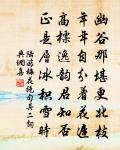 幽谷那堪更北枝
年年自分著花遲
高標逸韻君知否
正是層冰積雪時
陸游梅花絕句其二詞
典網集